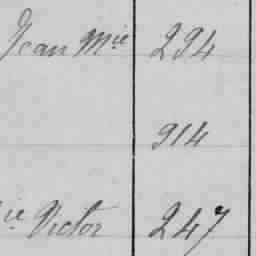 Jean Mie 294
914
ie Victor 247